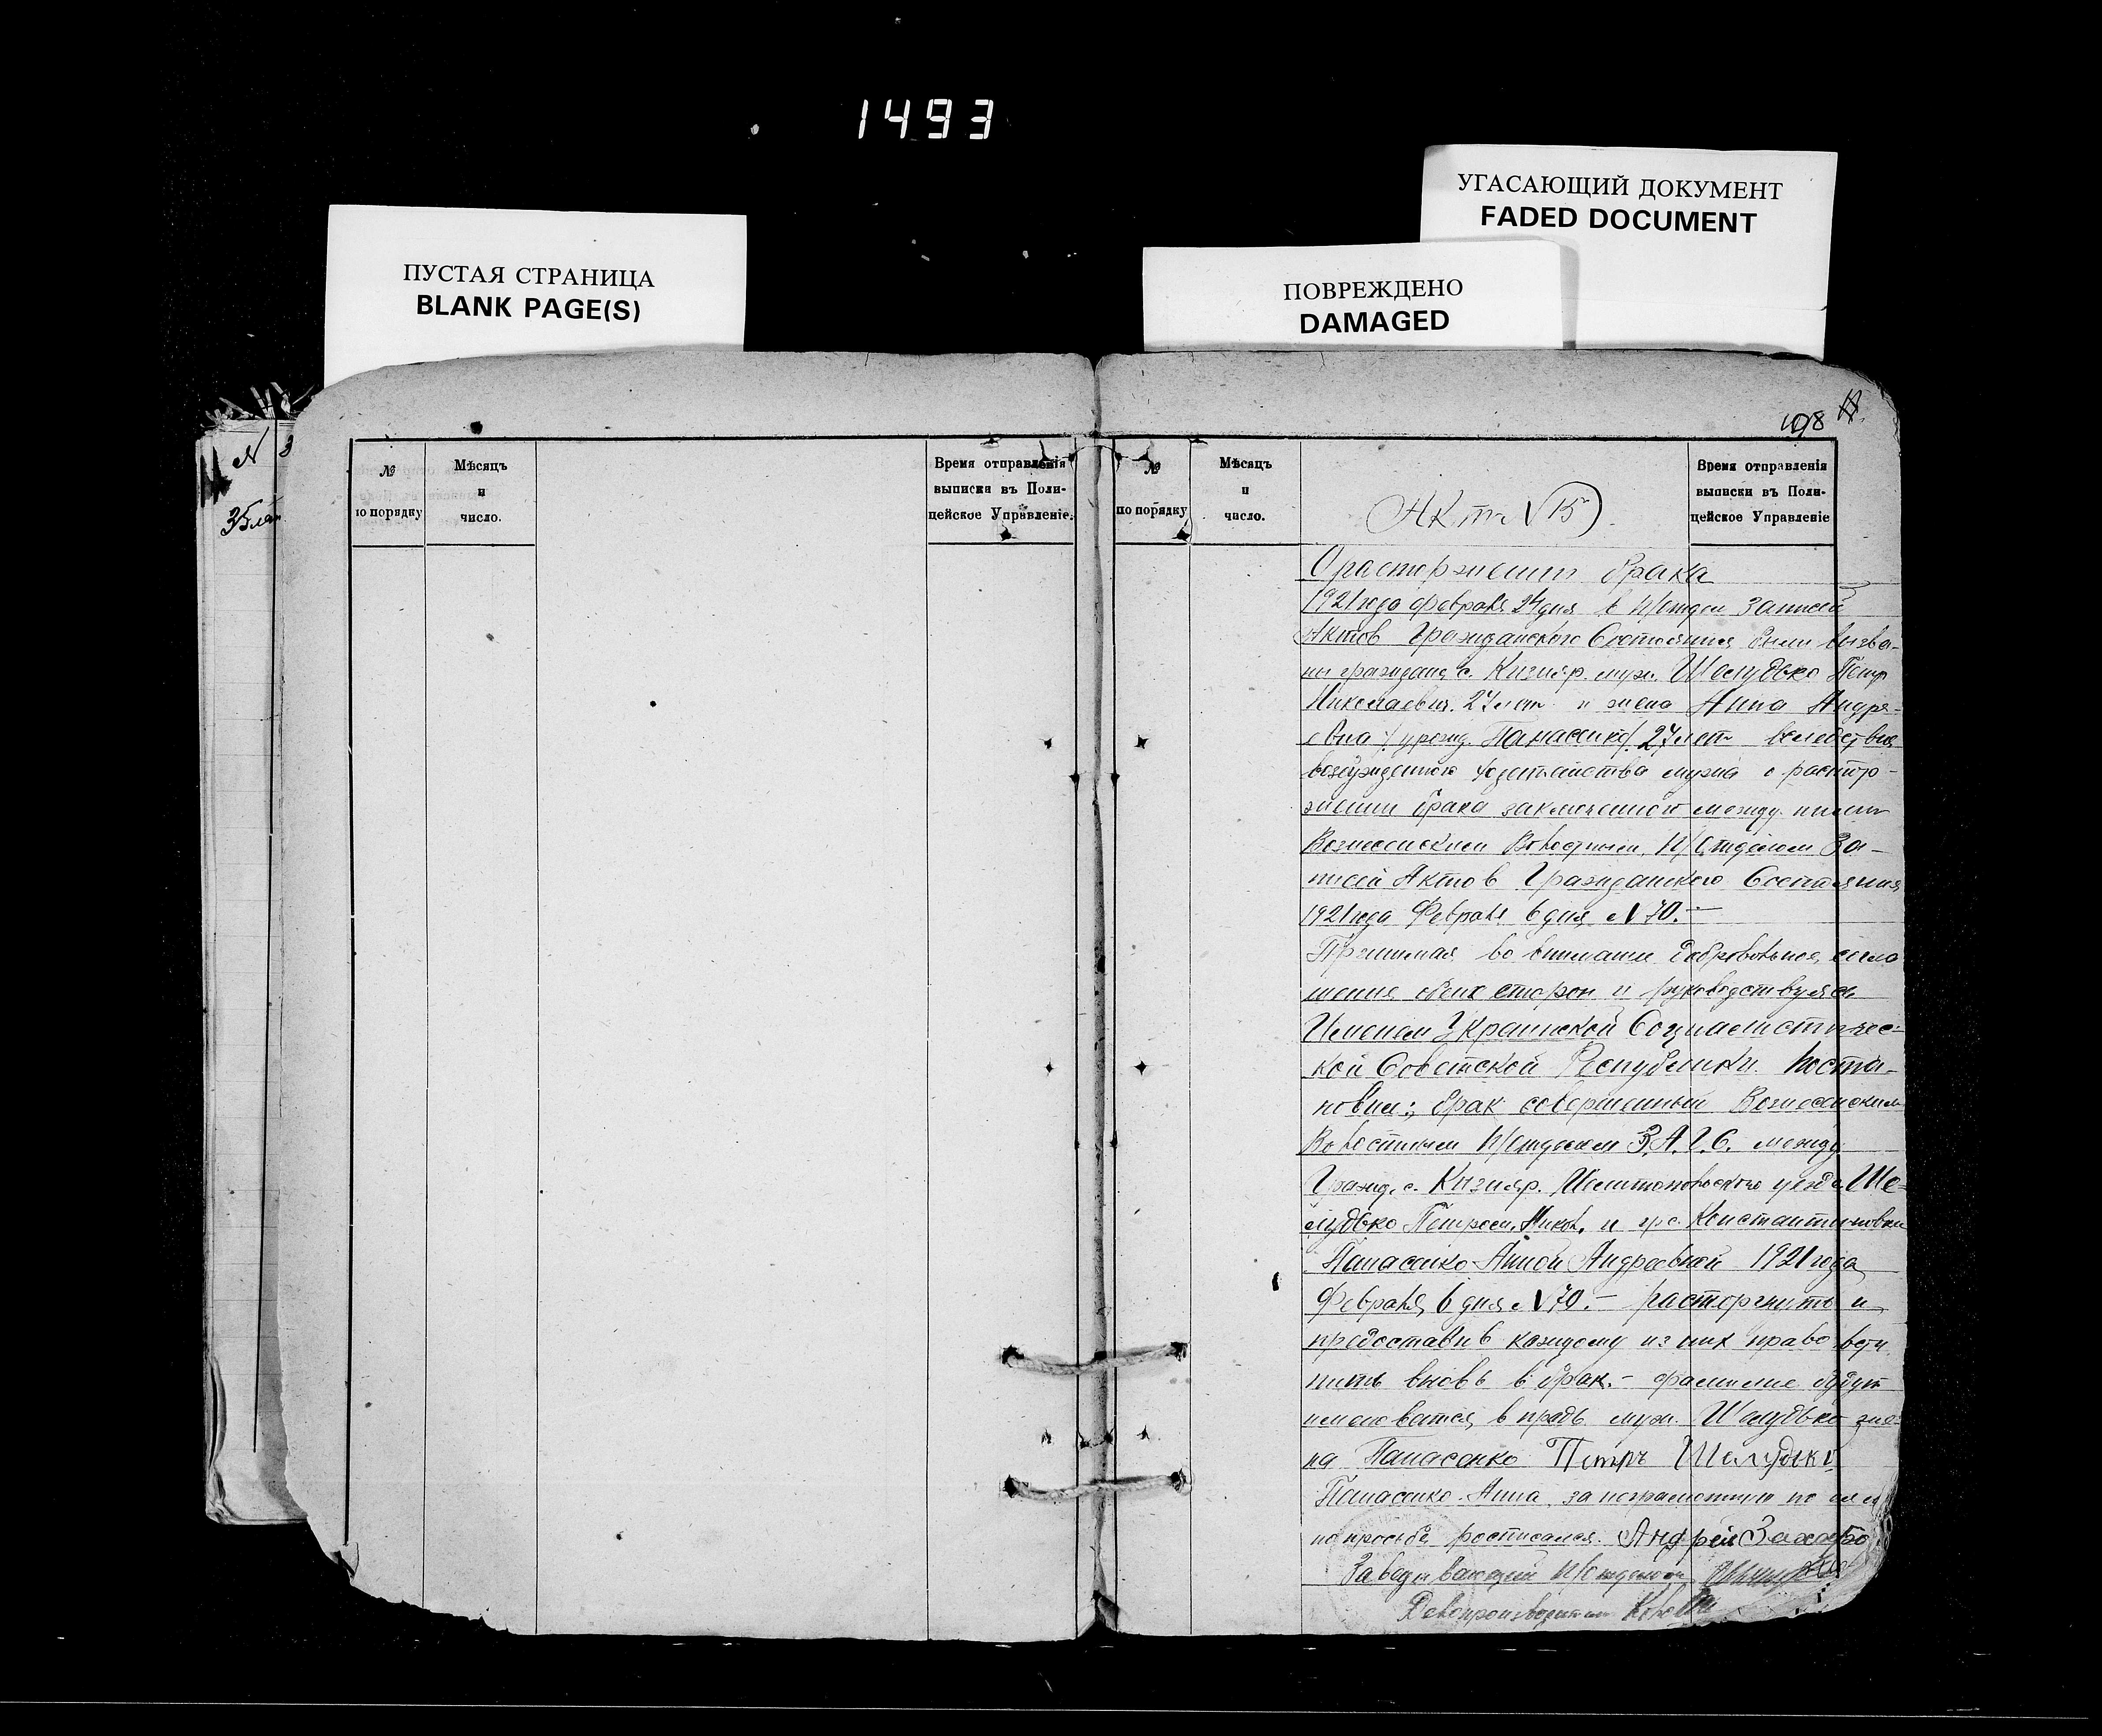 1493
УГАСАЮЩИЙ ДОКУМЕНТ
FADED DOCUMENT
ПУСТАЯ СТРАНИЦА
BLANK PAGE(S)
ПОВРЕЖДЕНО
DAMAGED
198
№ 3
35 лет
№
по порядку
Мѣсяцъ
и
число.
Время отправленія
выписки въ Поли-
цейское Управленіе.
№
по порядку
Мѣсяцъ
и
число.
Актъ № 15
Время отправленія
выписки въ Поли-
цейское Управленіе
О расторжении брака
1921 года февраля 24 дня в П/отдел Записей
Актов Гражданского Состояния были вызва-
ны граждане с. Кизияр. муж. Шелудько Пётр
Николаевич. 27 лет и жена Анна Андре-
евна /урожд. Панасенко/ 27 лет вследствие
возбужденного ходатайства мужа о растор-
жении брака заключенного между ними
Вознесенским Волостным П/отделом За-
писей Актов Гражданского Состояния
1921 года Февраля 6 дня № 70. —
Принимая во внимание добровольное согла
шение обеих сторон и руководствуясь
Именем Украинской Социалистичес-
кой Советской Республики. Поста-
новил: брак совершенный Вознесенским
Волостным П/отделом З.А.Г.С. между
Гражд. с. Кизияр. Мелитопольского уезда Ше-
лудько Петром Никол. и гр. с. Константиновки
Панасенко Анной Андреевной 1921 года
Февраля 6 дня № 70. — расторгнуть и
предоставив каждому из них право всту
пить вновь в брак. — фамилие будут
именоватся впредь муж. Шелудько же-
на Панасенко Петръ Шелудько
Панасенко Анна, за неграмотную по ея
по просьбе росписался. Андрей
Заведывающий П/отделом
Делопроизводитель